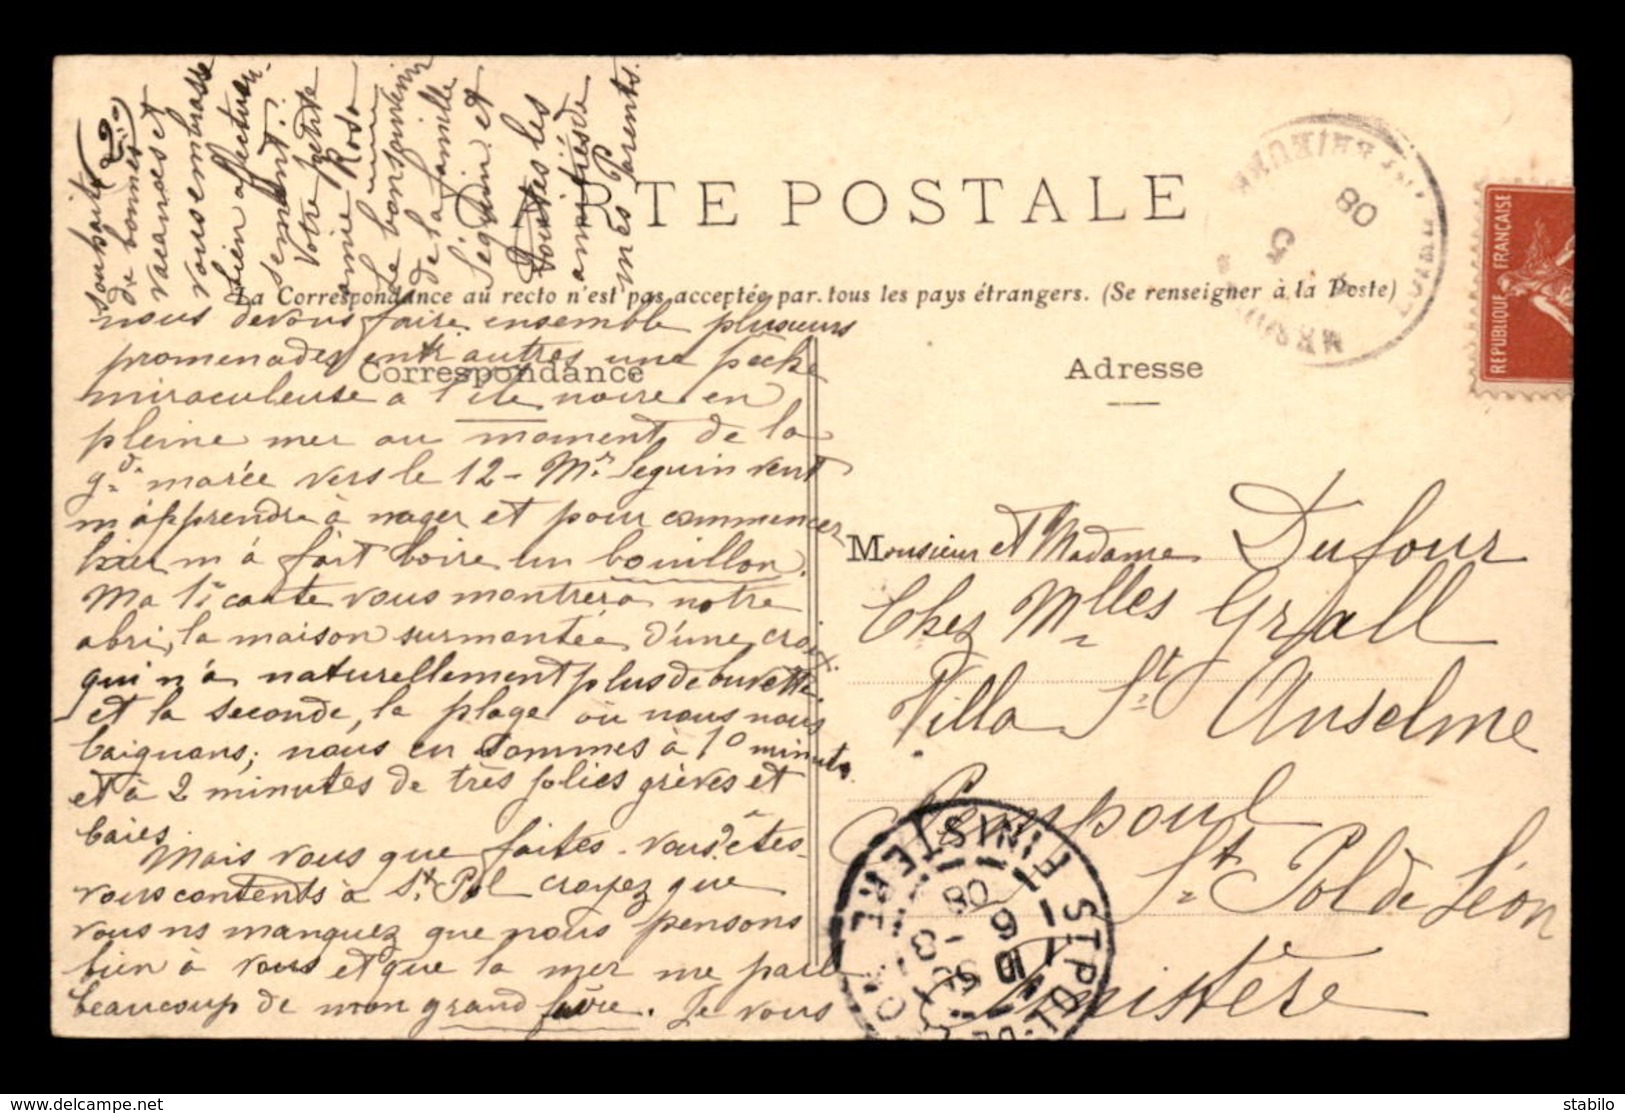 CARTE POSTALE
La Correspondance au recto n'est pas acceptée par tous les pays étrangers. (Se renseigner à la Poste)
Correspondance
nous devons faire ensemble plusieurs
promenades entr'autres une pêche
miraculeuse à l'île noire en
pleine mer au moment de la
gde marée vers le 12 - Mr Seguin vent
m'apprendre à nager et pour commencer
hier m'a fait boire un bouillon.
Ma 1e carte vous montrera notre
abri, la maison surmontée d'une croix
qui n'a naturellement plus de buvette
et la seconde, la plage où nous nous
baignons; nous en sommes à 10 minutes
et à 2 minutes de très jolies grèves et
baies.
Mais vous que faites-vous? êtes-
vous contents à St Pol croyez que
vous ns manquez que nous pensons
bien à vous et que la mer me parle
beaucoup de mon grand frère. Je vous
souhaite
de bonnes
vacances et
vous embrasse
bien affectueu-
sement.
Votre petite
amie Rosa
Le bon souvenir
de la famille
Séguin et
toutes les
amitiés de
mes Parents.
Adresse
Monsieur et Madame Dufour
Chez Mlles Grall
Villa St Anselme
Pempoul
St Pol de Léon
Finistère
REPUBLIQUE FRANÇAISE
08
5
ST POL-DE-
FINISTERE
5
6 - 8
08
delcampe.net
stabilo